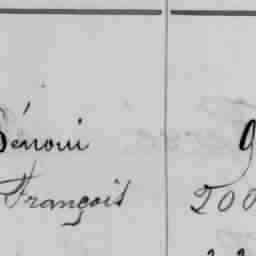 Bénoni 9
François 200